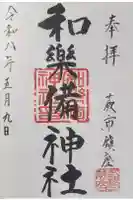 奉拝
萩市鎮座
和樂備神社
令和八年五月九日